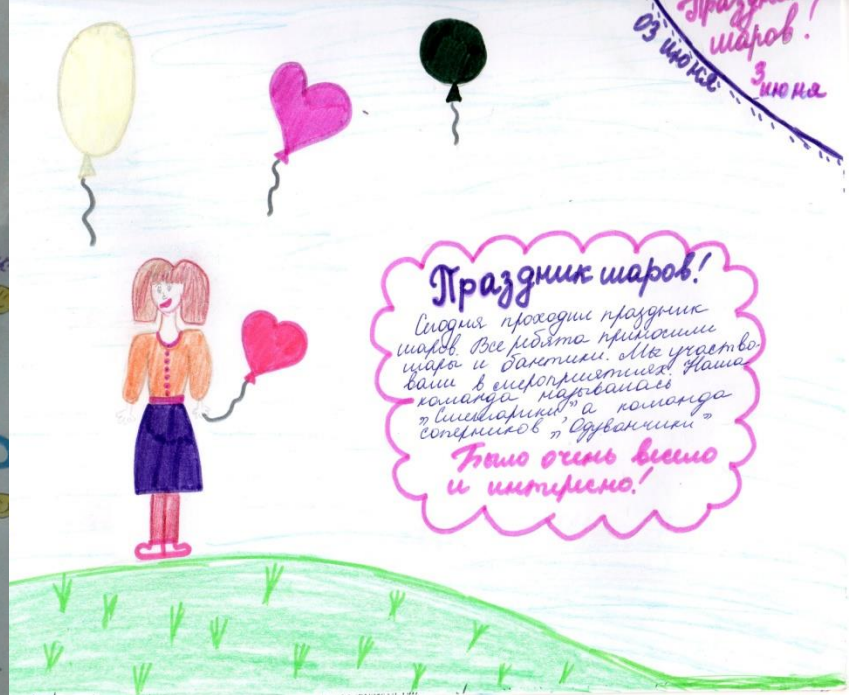 Праздник
шаров!
03 июня
3
июня
Праздник шаров!
Сегодня проходил праздник
шаров. Все ребята приносили
шары и бантики. Мы участво-
вали в мероприятиях. Наша
команда называлась
"Смешарики", а команда
соперников "Одуванчики"
Было очень весело
и интересно!